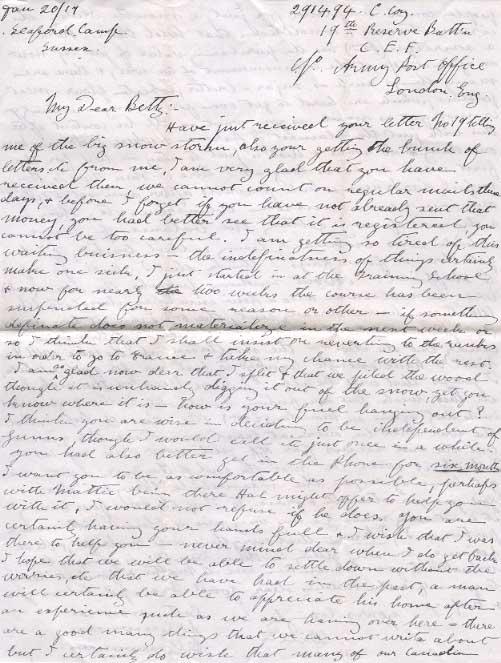 Jan 20/17
Seaford Camp
Sussex
291494. C. Coy.
19th Reserve Battn
C.E.F.
c/o. Army Post Office
London. Eng.
My Dear Betty:-
Have just received your letter No 19 telling
me of the big snow storm, also your getting the bunch of
letters from me, I am very glad that you have
received them, we cannot count on regular mails these
days, & before I forget if you have not already sent that
money, you had better see that it is registered, you
cannot be too careful. I am getting so tired of this
waiting buisness - the indefinatness of things certainly
make one sick, I just started in at the training school
& now for nearly two weeks the course has been
suspended for some reason or other - if something
definate does not materialize in the next week or
so I think that I shall insist on reverting to the ranks
in order to go to France & take my chance with the rest.
I am so glad now dear that I split & that we piled the wood
though it is unhandy digging it out of the snow, yet you
know where it is - how is your fuel hanging out?
I think you are wise in deciding to be independent of
Gunns, though I would call it just once in a while
you had also better get in the Phone for six months
I want you to be as comfortable as possible, perhaps
with Mattie being there Hal might offer to help you
with it, I would not refuse if he does. You are
certainly having your hands full & I wish that I was
there to help you - never mind dear when I do get back
I hope that we will be able to settle down without the
worries, etc that we have had in the past, a man
will certainly be able to appreciate his home after
an experience such as we are having over here - there
are a good many things that we cannot write about
but I certainly do wish that many of our Canadian